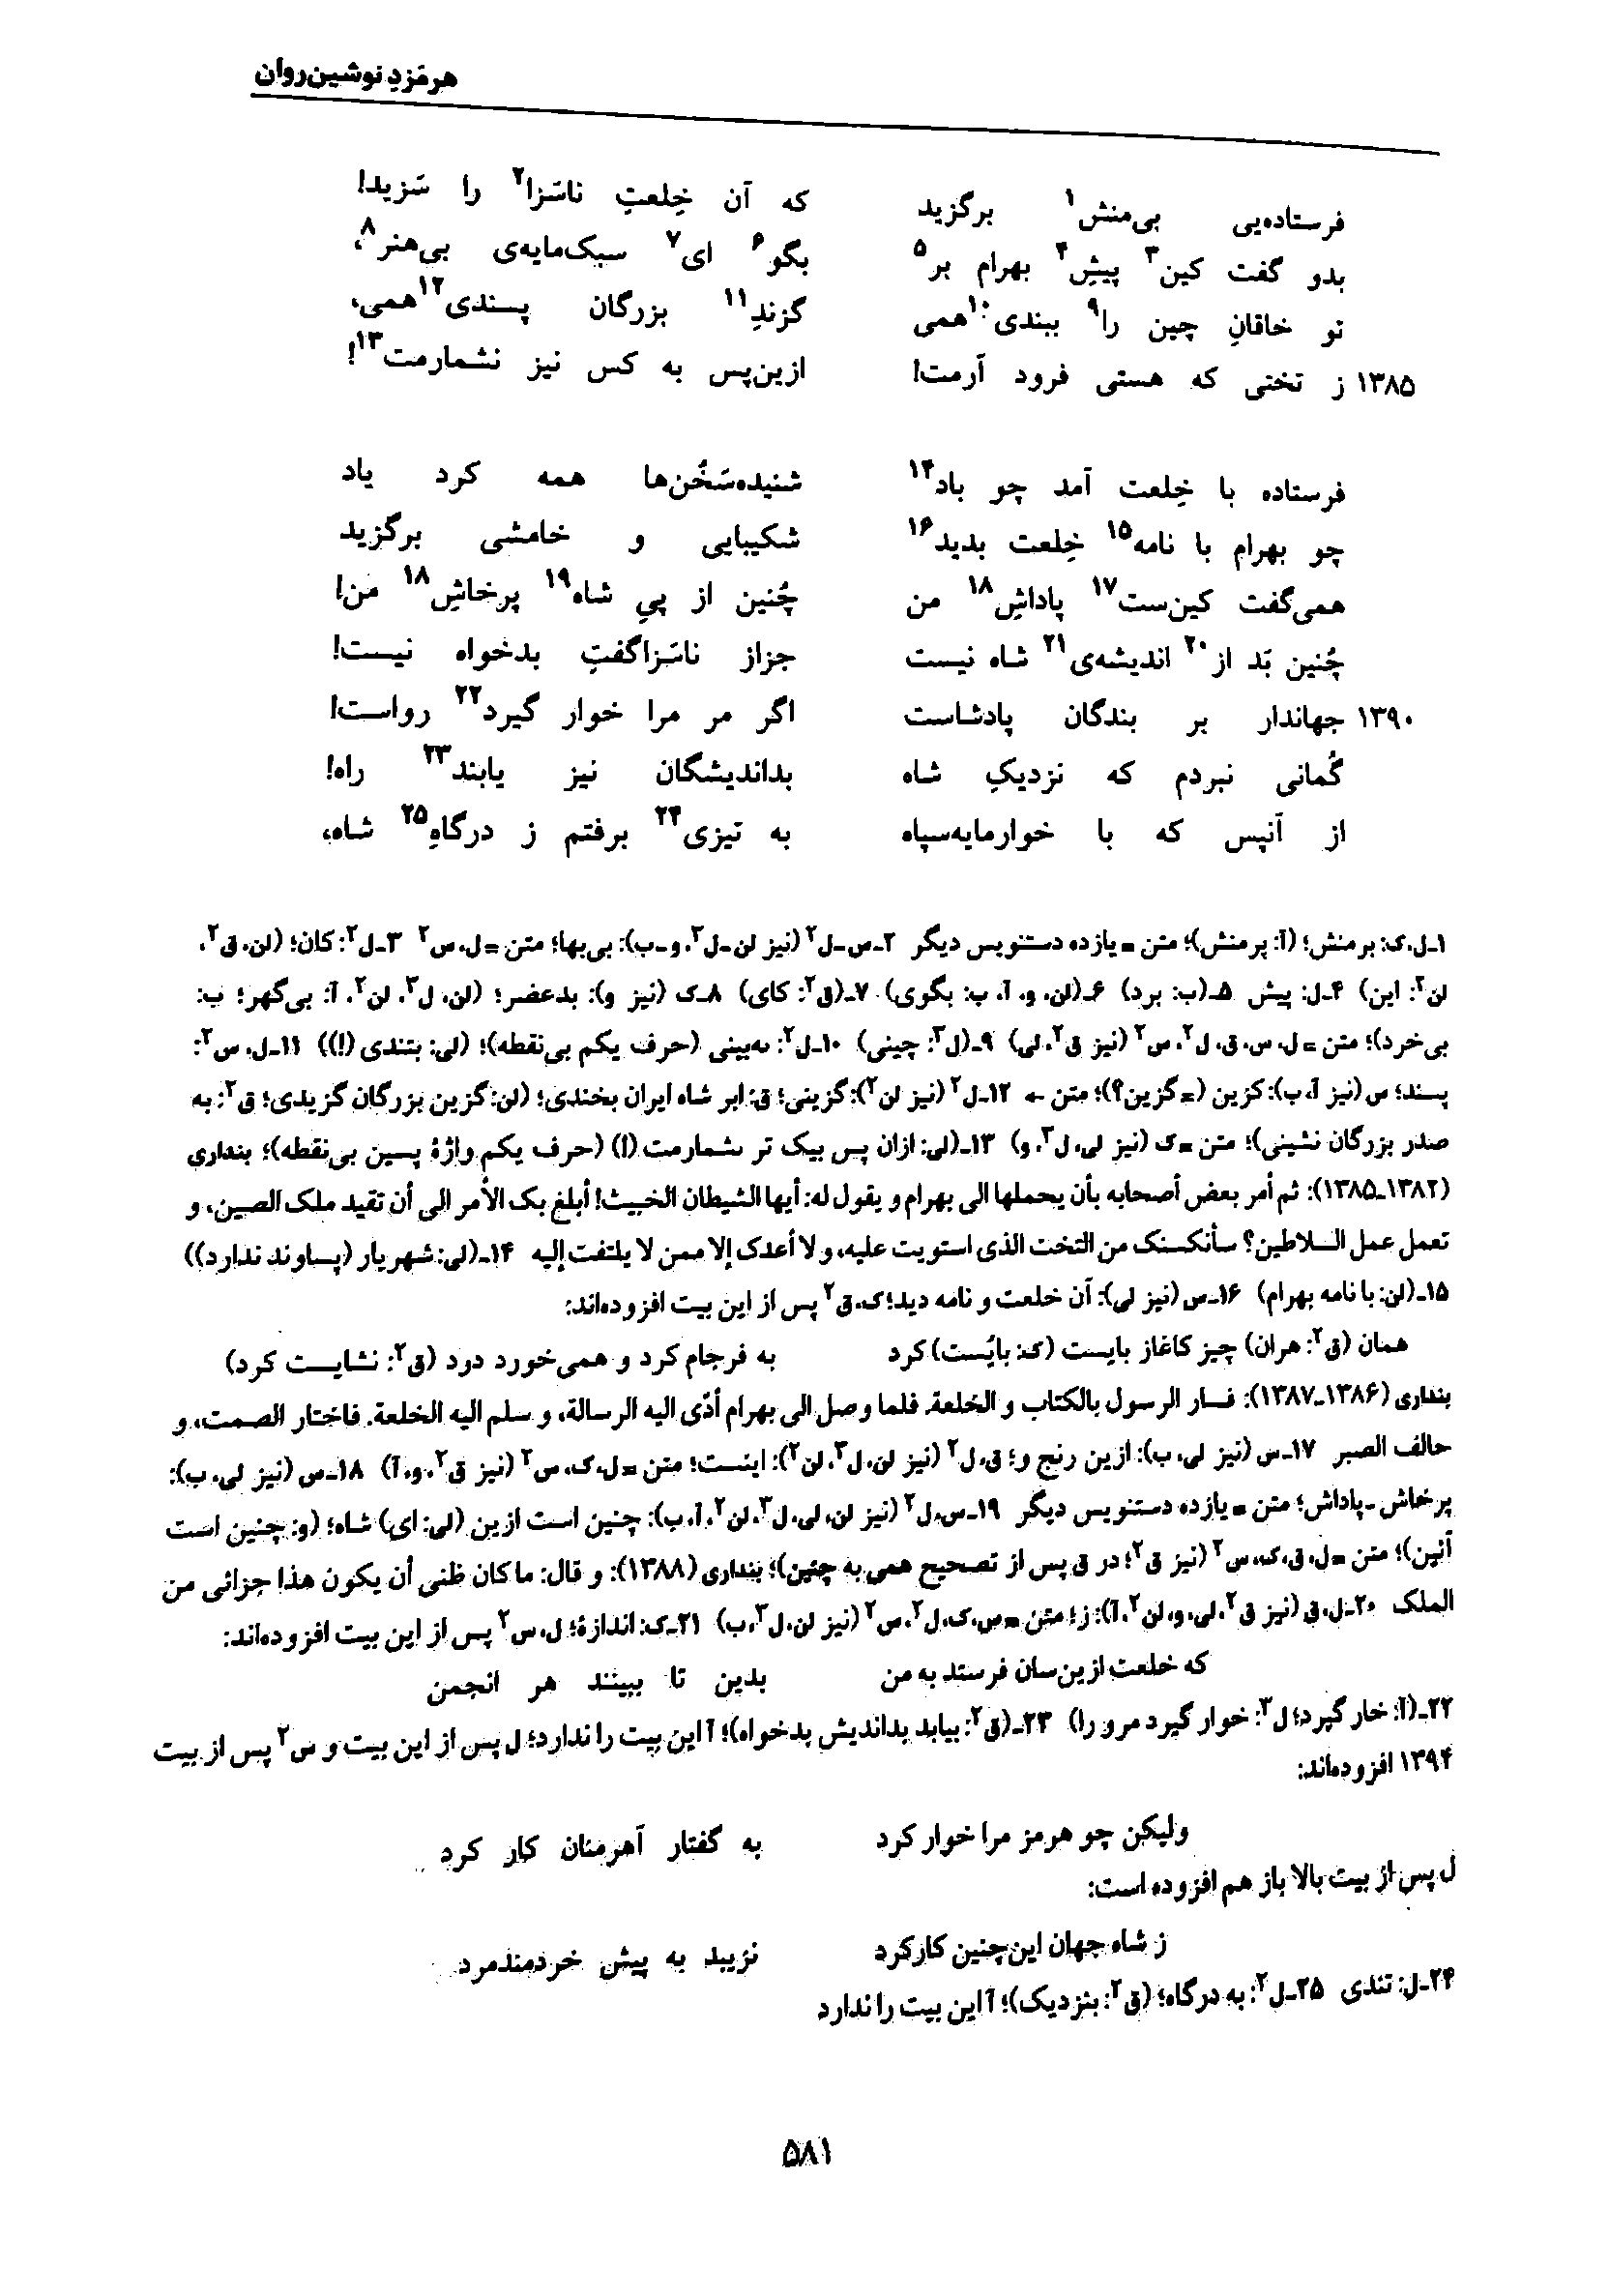 هرمَزدِ نوشین‌روان
فرستاده‌یی بی‌منش۱ برگزید که آن خِلعتِ ناسَزا۲ را سَزید!
بدو گفت کین۳ پیشِ۴ بهرام بر۵ بگو۶ ای۷ سبک‌مایه‌ی بی‌هنر۸،
تو خاقانِ چین را۹ ببندی۱۰ همی گزندِ۱۱ بزرگان پسندی۱۲ همی،
۱۳۸۵ ز تختی که هستی فرود آرمت! ازین‌پس به کس نیز نشمارمت۱۳!
فرستاده با خِلعت آمد چو باد۱۴ شنیده‌سَخُن‌ها همه کرد یاد
چو بهرام با نامه۱۵ خِلعت بدید۱۶ شکیبایی و خامشی برگزید
همی‌گفت کین‌ست۱۷ پاداشِ۱۸ من چُنین از پیِ شاه۱۹ پرخاشِ۱۸ من!
چُنین بَد از۲۰ اندیشه‌ی۲۱ شاه نیست جزاز ناسَزاگفتِ بدخواه نیست!
۱۳۹۰ جهاندار بر بندگان پادشاست اگر مر مرا خوار گیرد۲۲ رواست!
گُمانی نبردم که نزدیکِ شاه بداندیشگان نیز یابند۲۳ راه!
از آنپس که با خوارمایه‌سپاه به تیزی۲۴ برفتم ز درگاهِ۲۵ شاه،
۱ـ ل، ک: برمنش؛ (آ: پرمنش)؛ متن = یازده دستنویس دیگر ۲ـ س ـ ل۲ (نیز لن ـ ل۳، و ـ ب): بی‌بها؛ متن = ل، س۲ ۳ـ ل۲: کان؛ (لن، ق۲،
لن۲: این) ۴ـ ل: پیش ۵ـ (ب: برد) ۶ـ (لن، و، آ، ب: بگوی) ۷ـ (ق۲: کای) ۸ـ ک (نیز و): بدعضر؛ (لن، ل۳، لن۲، آ: بی‌گهر؛ ب:
بی‌خرد)؛ متن = ل، س، ق، ل۲، س۲ (نیز ق۲، لی) ۹ـ (ل۳: چینی) ۱۰ـ ل۲: ںه‌بینی (حرف یکم بی‌نقطه)؛ (لی: بتندی (!)) ۱۱ـ ل، س۲:
پسند؛ س (نیز آ، ب): کزین (= گزین؟)؛ متن ← ۱۲ـ ل۲ (نیز لن۲): گزینی؛ ق: ابر شاه ایران بخندی؛ (لن: گزین بزرگان گزیدی؛ ق۲: به
صدر بزرگان نشینی)؛ متن = ک (نیز لی، ل۳، و) ۱۳ـ (لی: ازان پس بیک تر ںشمارمت (!) (حرف یکم واژهٔ پسین بی‌نقطه)؛ بنداری
(۱۳۸۲ـ۱۳۸۵): ثم أمر بعض أصحابه بأن یحملها الی بهرام و یقول له: أیها الشیطان الخبیث! أبلغ بک الأمر الی أن تقید ملک الصین، و
تعمل عمل السلاطین؟ سأنکسنک من التخت الذی استویت علیه، و لا أعدک إلا ممن لا یلتفت إلیه ۱۴ـ (لی: شهریار (پساوند ندارد))
۱۵ـ (لن: با نامه بهرام) ۱۶ـ س (نیز لی): آن خلعت و نامه دید؛ ک، ق۲ پس از این بیت افزوده‌اند:
همان (ق۲: هران) چیز کاغاز بایست (ک: بائست) کرد به فرجام کرد و همی‌خورد درد (ق۲: نشایست کرد)
بنداری (۱۳۸۶ـ۱۳۸۷): فسار الرسول بالکتاب و الخلعة. فلما وصل الی بهرام أدّی الیه الرسالة، و سلم الیه الخلعة. فاختار الصمت، و
حالف الصبر ۱۷ـ س (نیز لی، ب): ازین رنج و؛ ق، ل۲ (نیز لن، ل۳، لن۲): اینست؛ متن = ل، ک، س۲ (نیز ق۲، و، آ) ۱۸ـ س (نیز لی، ب):
پرخاش ـ پاداش؛ متن = یازده دستنویس دیگر ۱۹ـ س، ل۲ (نیز لن، لی، ل۳، لن۲، آ، ب): چنین است ازین (لی: ای) شاه؛ (و: چنین است
آئین)؛ متن = ل، ق، ک، س۲ (نیز ق۲؛ در ق پس از تصحیح همی به چنین)؛ بنداری (۱۳۸۸): و قال: ما کان ظنی أن یکون هذا جزائی من
الملک ۲۰ـ ل، ق (نیز ق۲، لی، و، لن۲، آ): ز؛ متن = س، ک، ل۲، س۲ (نیز لن، ل۳، ب) ۲۱ـ ک: اندازهٔ؛ ل، س۲ پس از این بیت افزوده‌اند:
که خلعت ازین‌سان فرستد به من بدین تا ببینند هر انجمن
۲۲ـ (آ: خار گیرد؛ ل۳: خوار گیرد مرو را) ۲۳ـ (ق۲: بیابد بداندیش بدخواه)؛ آ این بیت را ندارد؛ ل پس از این بیت و س۲ پس از بیت
۱۳۹۴ افزوده‌اند:
ولیکن چو هرمز مرا خوار کرد به گفتار آهرمنان کار کرد
ل پس از بیت بالا باز هم افزوده است:
ز شاه جهان این‌چنین کارکرد نزیبد به پیش خردمندمرد
۲۴ـ ل: تندی ۲۵ـ ل۲: به درگاه؛ (ق۲: بنزدیک)؛ آ این بیت را ندارد
۵۸۱